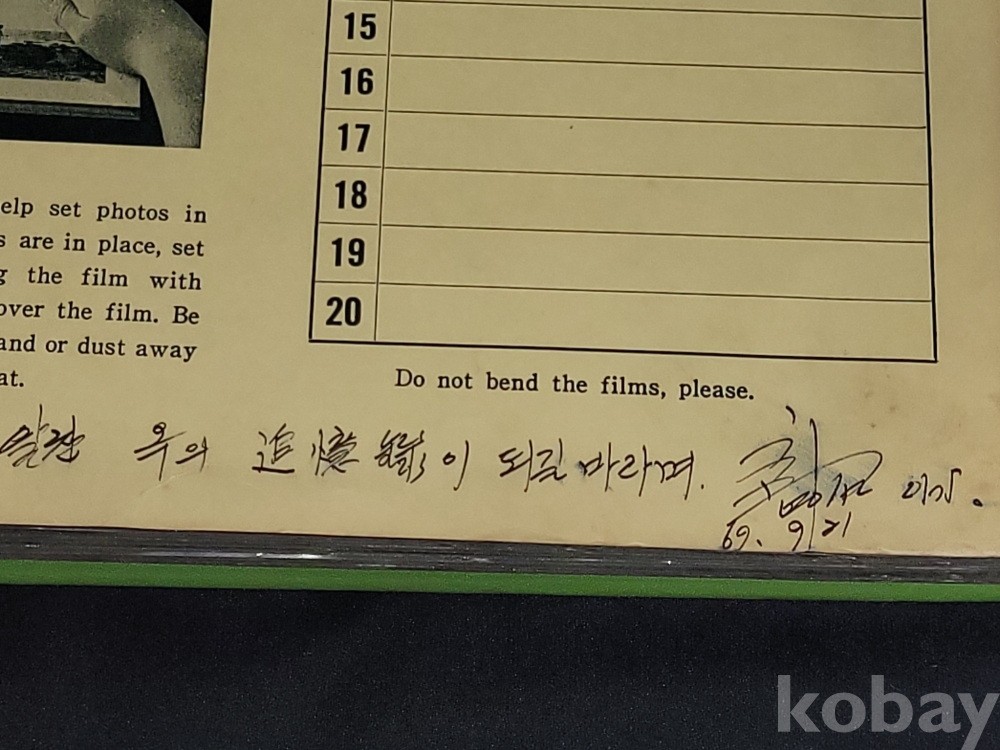 15
16
17
18
19
20
elp set photos in
s are in place, set
g the film with
over the film. Be
and or dust away
at.
Do not bend the films, please.
옥의 追憶錄이 되길 바라며.
69. 9/21
kobay